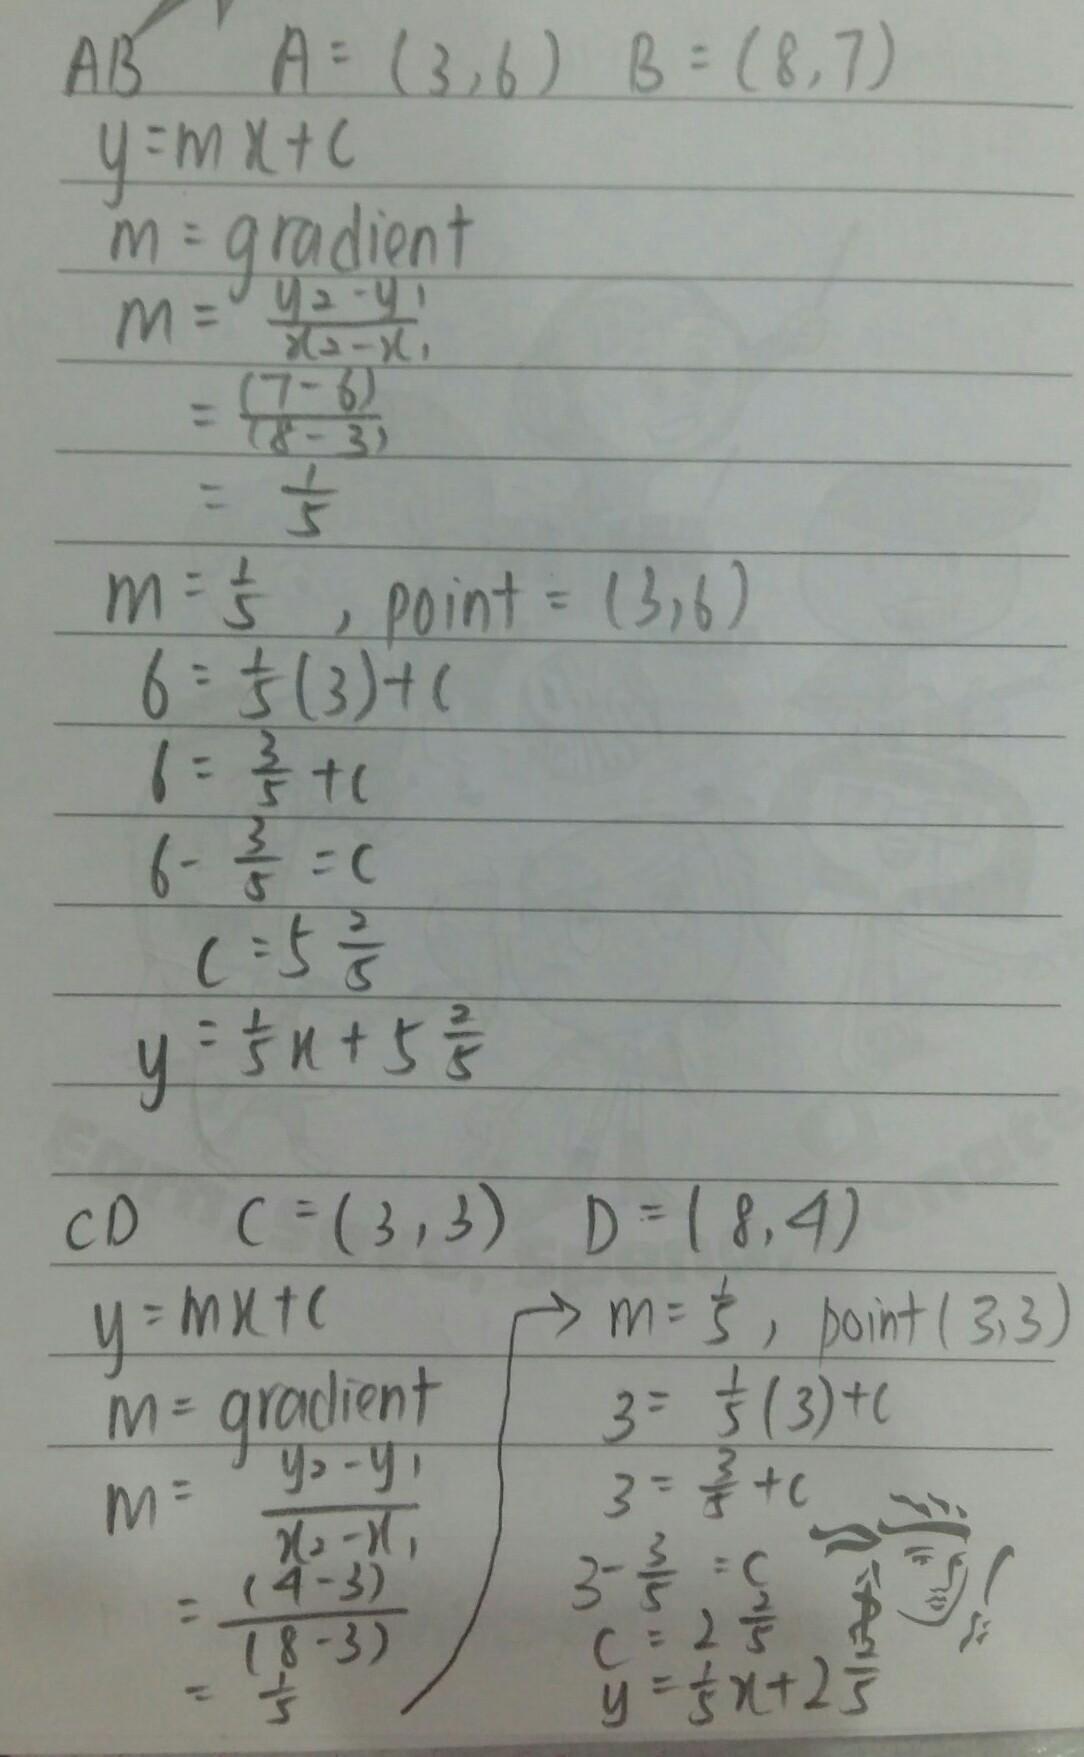 AB A = (3,6) B = (8,7)
y = mx + c
m = gradient
m = y2 - y1 / x2 - x1
= (7 - 6) / (8 - 3)
= 1/5
m = 1/5 , point = (3,6)
6 = 1/5 (3) + c
6 = 3/5 + c
6 - 3/5 = c
c = 5 2/5
y = 1/5 x + 5 2/5
CD C = (3,3) D = (8,4)
y = mx + c
m = gradient
m = y2 - y1 / x2 - x1
= (4 - 3) / (8 - 3)
= 1/5
→ m = 1/5 , point (3,3)
3 = 1/5 (3) + c
3 = 3/5 + c
3 - 3/5 = c
c = 2 2/5
y = 1/5 x + 2 2/5